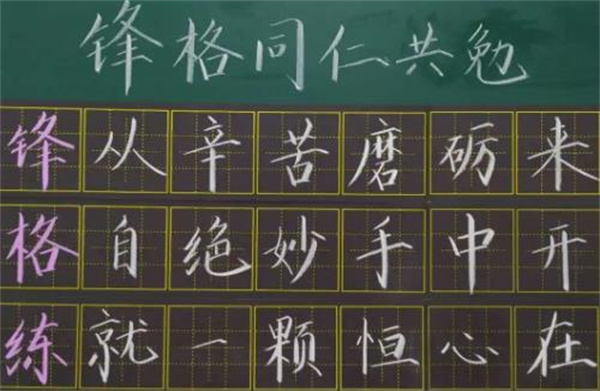 锋格同仁共勉
锋从辛苦磨砺来
格自绝妙手中开
练就一颗恒心在